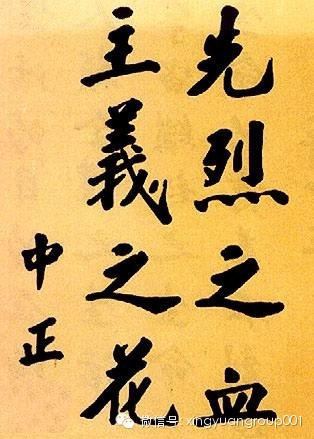 先烈之血
主義之花
中正
微信号: xingyuangroup001